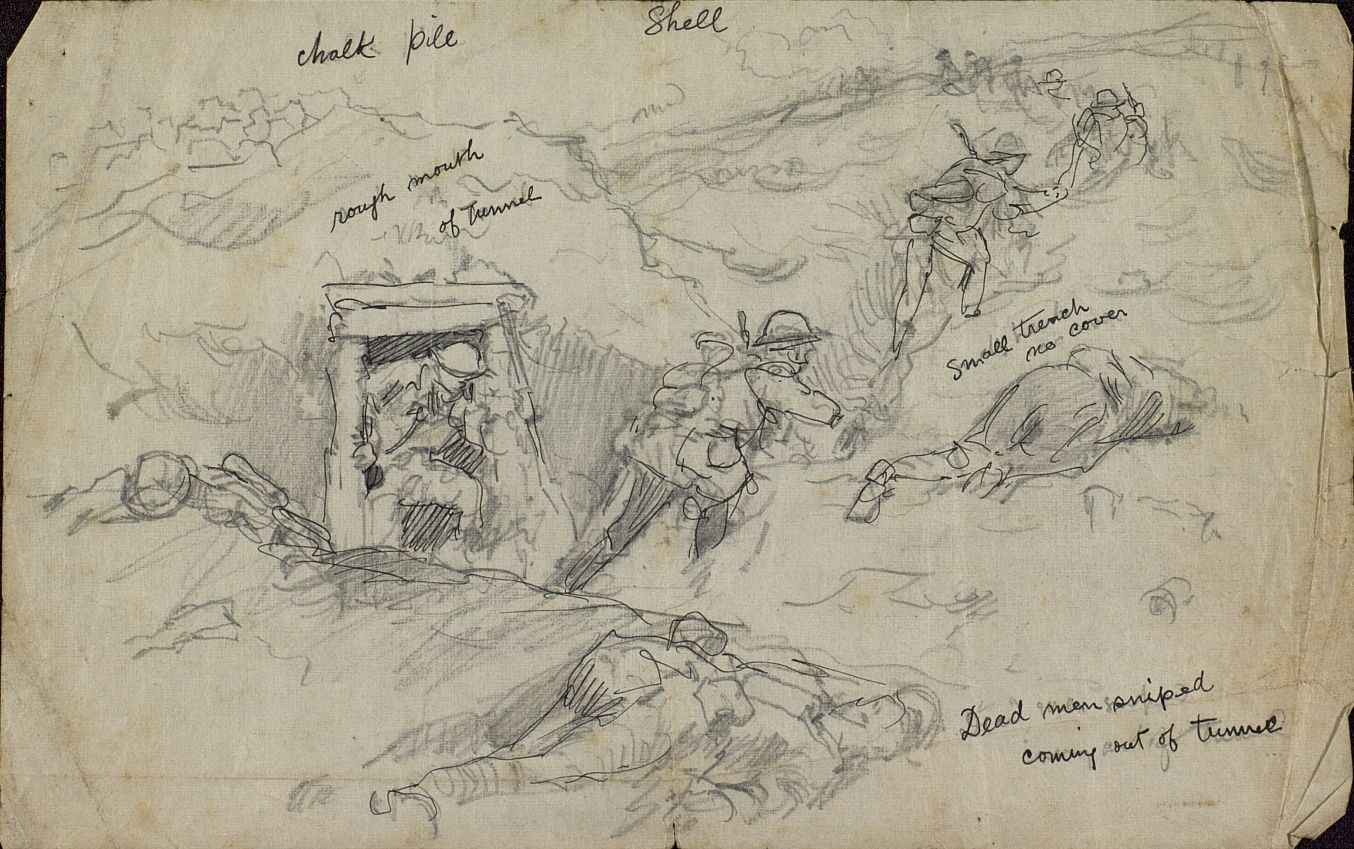 chalk pile
Shell
rough mouth
of tunnel
Small trench
no cover
Dead men sniped
coming out of tunnel